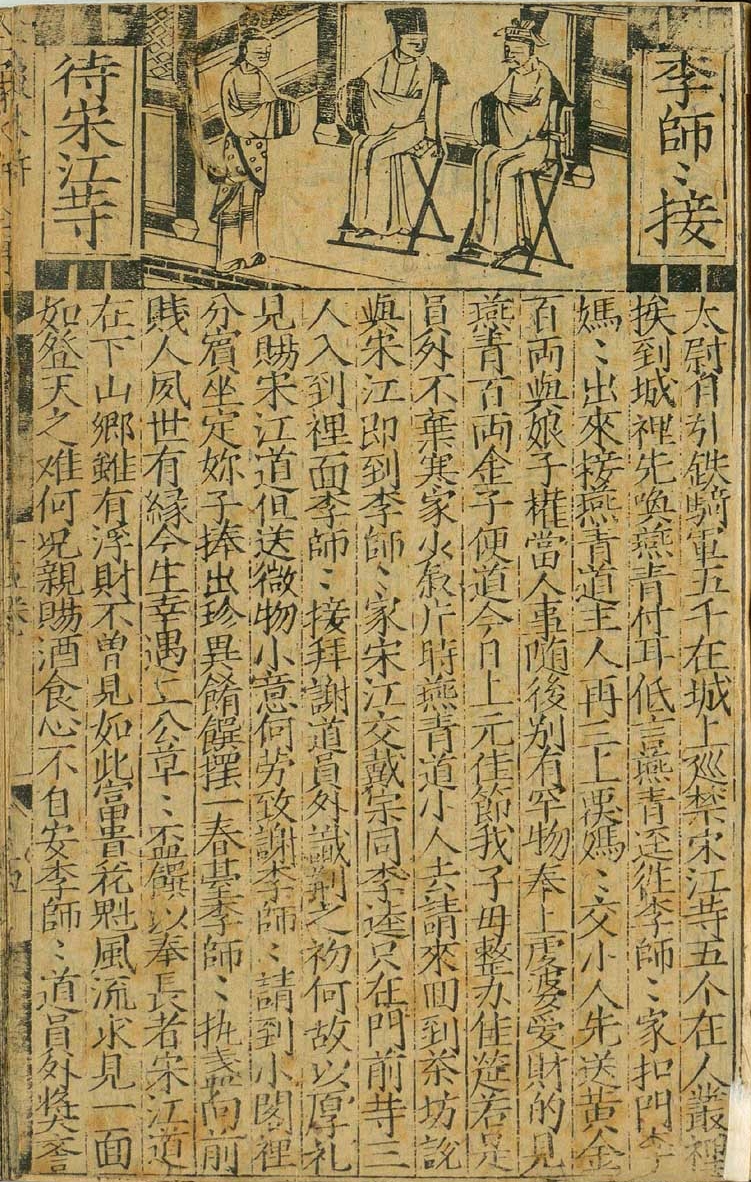 李師〻接
待宋江䓁
太尉自引鉄騎軍五千在城上廵禁宋江䓁五个在人叢裡
挨到城裡先喚燕青付耳低言燕青逕徃李師〻家扣門李
媽〻出來接燕青道主人再三上覆媽〻交小人先送黃金
百両與娘子權當人事随後别有罕物奉上虔婆愛財的見
燕青百両金子便道今日上元佳節我子母整办佳筵若是
員外不棄寒家少叙片時燕青道小人去請來回到茶坊說
與宋江即到李師〻家宋江交戴宗同李逵只在門前䓁三
人入到裡面李師〻接拜謝道員外識荆之初何故以厚礼
見賜宋江道但送微物小意何劳致謝李師〻請到小閣裡
分賔坐定妳子捧出珍異餚饌擺一春䑓李師〻执盞向前
賤人夙世有緣今生幸遇二公草〻盃饌以奉長者宋江道
在下山鄉雖有浮財不曽見如此富貴花魁風流求見一面
如登天之难何况親賜酒食心不自安李師〻道員外奬譽